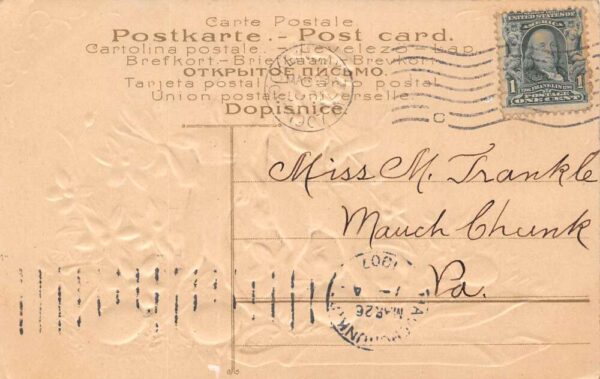 Carte Postale
Postkarte.- Post card.
Cartolina postale. - Levelezo-Lap.
Brefkort.-Briefkaart. Brevkort.
ОТКРЫТОЕ ПИСЬМО.
Tarjeta postal. Cartao postal.
Union postale universelle.
Dopisnice.
UNITED STATES OF
AMERICA
1 1
FRANKLIN
POSTAGE
ONE CENT
C
Miss M. Trankle
Mauch Chunk
Pa.
MAUCH CHUNK
MAR 26
4
1907